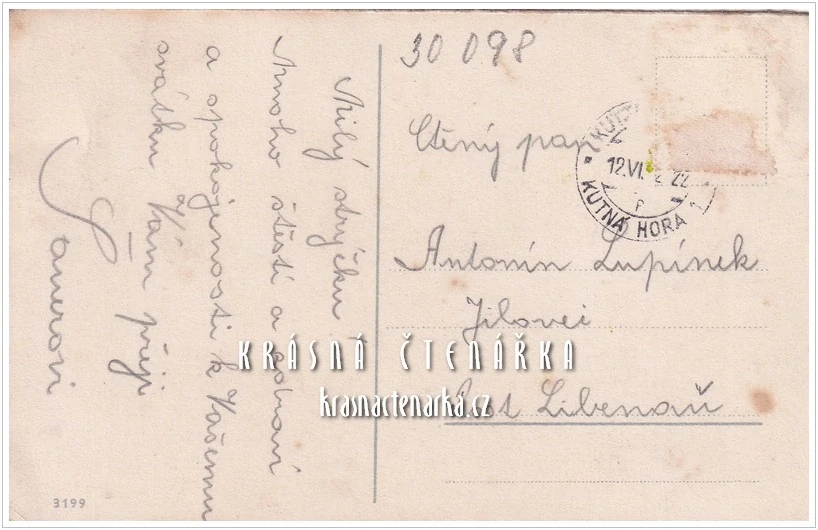 30 098
Milý strýčku
Mnoho štěstí a zdraví
a spokojenosti k Vašemu
svátku Vám přeji
Ctěný pan
Antonín Lupínek
Jilovei
Libenaů
KUTNÁ HORA
12.VI. 22
KUTNÁ HORA 1
KRÁSNÁ ČTENÁŘKA
krasnactenarka.cz
3199